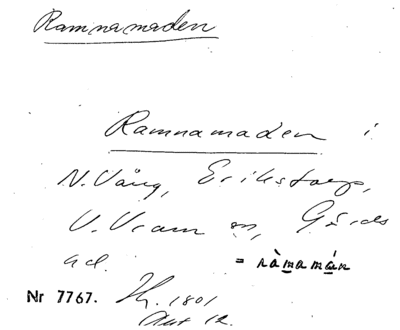 Ramnamaden
Ramnamaden i
N. Vång, Erikstorp,
V. Vram sn, Gärds
hd. = ràmamán
Nr 7767. Jk. 1801
Akt 12.